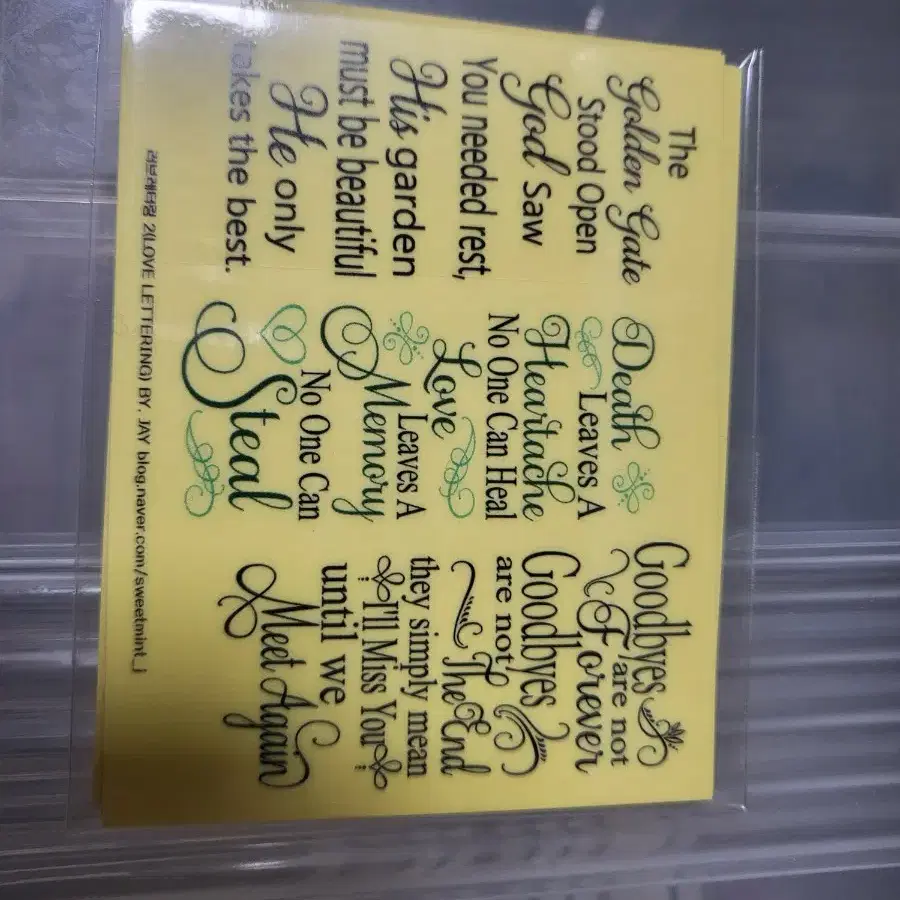 The
Golden Gate
Stood Open
God Saw
You needed rest,
His garden
must be beautiful
He only
takes the best.
Death
Leaves A
Heartache
No One Can Heal
Love
Leaves A
Memory
No One Can
Steal
Goodbyes
are not
Forever
Goodbyes
are not
The End
they simply mean
I'll Miss You
until we
Meet Again
러브레터링 2(LOVE LETTERING) BY. JAY blog.naver.com/sweetmint_j